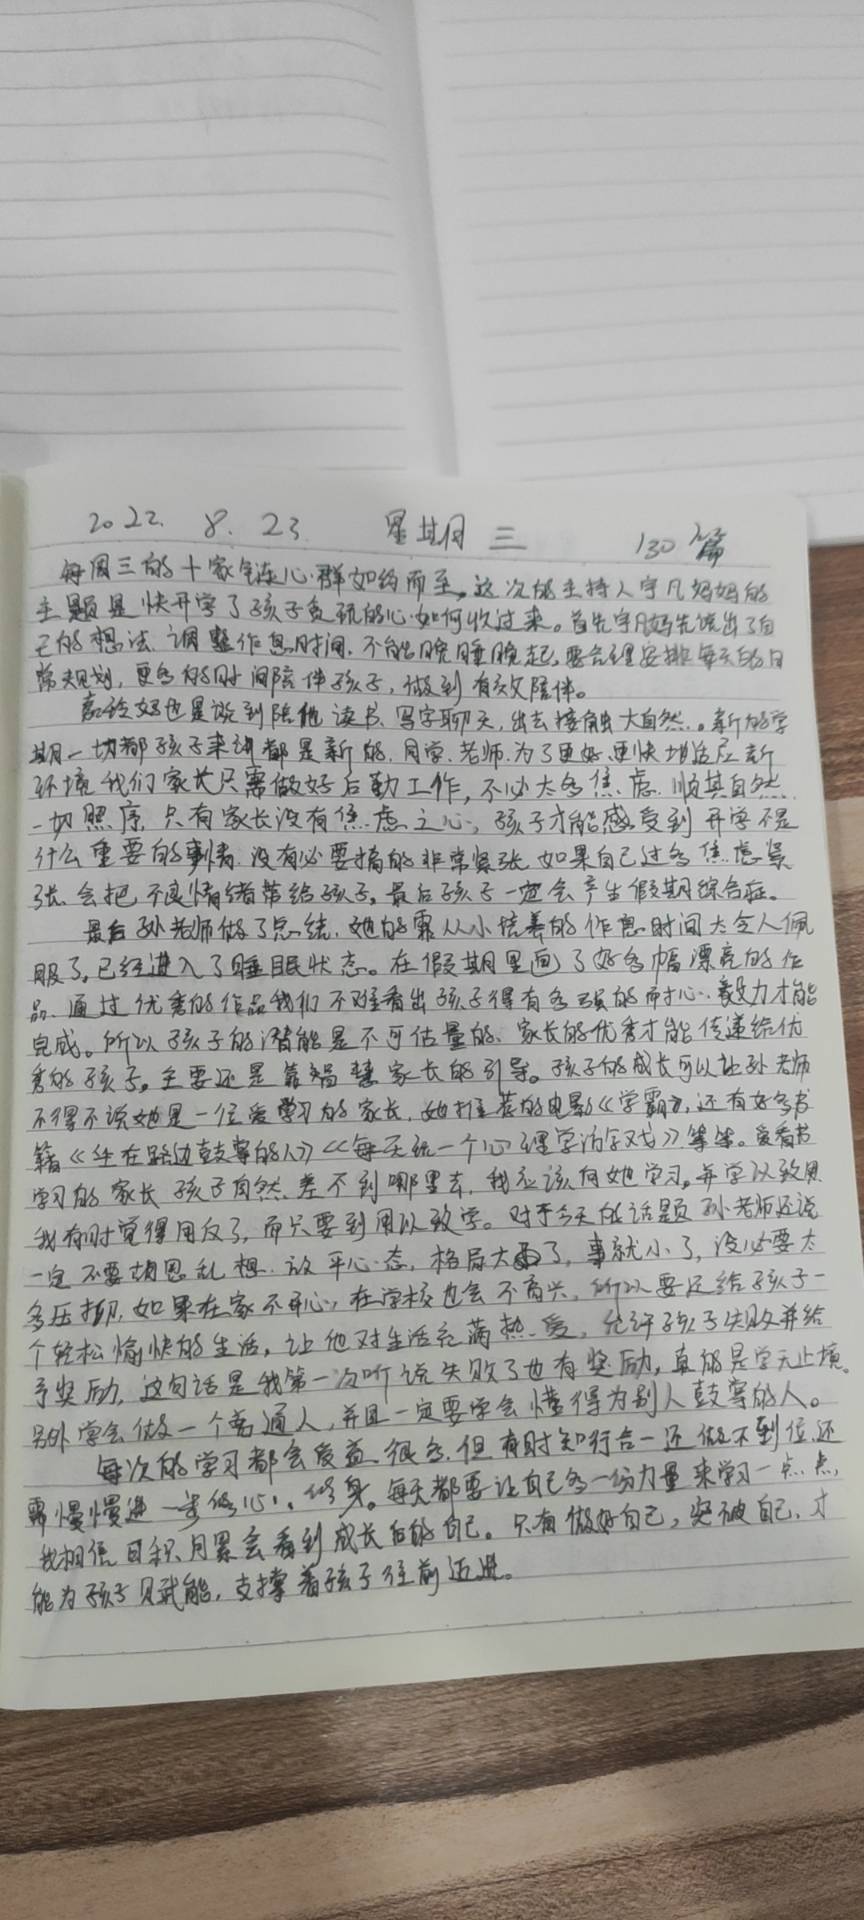 2022. 8. 23. 星期三 130篇
每周三的十家链心群如约而至。这次的主持人宇凡妈妈的
主题是快开学了孩子贪玩的心如何收过来。首先宇凡妈先说出了自
己的想法, 调整作息时间, 不能晚睡晚起, 要合理安排每天的日
常规划, 更多的时间陪伴孩子, 做到有效陪伴。
妈也是说到陪他读书、写字聊天, 出去接触大自然。新的学
期一切都孩子来讲都是新的, 同学、老师, 为了更好、更快地适应新
环境我们家长只需做好后勤工作, 不必太多焦虑. 顺其自然.
一切照序, 只有家长没有焦虑之心, 孩子才能感受到开学不是
什么重要的事情. 没有必要搞的非常紧张. 如果自己过多焦虑紧
张. 会把不良情绪带给孩子, 最后孩子一定会产生假期综合症。
最后孙老师做了总结, 她的霖从小培养的作息时间太令人佩
服了, 已经进入了睡眠状态。在假期里画了好多幅漂亮的作
品. 通过优秀的作品我们不难看出孩子得有多强的耐心、毅力才能
完成。所以孩子的潜能是不可估量的. 家长的优秀才能传递给优
秀的孩子, 主要还是靠智慧家长的引导。孩子的成长可以让孙老师
不得不说她是一位爱学习的家长, 她推荐的电影《学霸》, 还有好多书
籍《坐在路边鼓掌的人》《每天玩一个心理学游戏》等等。爱看书
学习的家长孩子自然差不到哪里去, 我应该向她学习, 并学以致用
我有时觉得用反了, 而只要到用以致学。对于今天的话题孙老师还说
一定不要胡思乱想. 放平心态, 格局大了, 事就小了, 没必要太
多压抑, 如果在家不开心, 在学校也会不高兴. 所以要还给孩子一
个轻松愉快的生活, 让他对生活充满热爱, 允许孩子失败并给
予奖励, 这句话是我第一次听说失败了也有奖励, 真的是学无止境。
另外学会做一个普通人, 并且一定要学会懂得为别人鼓掌的人。
每次的学习都会受益很多, 但有时知行合一还做不到位, 还
需慢慢进一步修心、修身。每天都要让自己多一份力量来学习一点点,
我相信日积月累会看到成长后的自己。只有做好自己, 突破自己, 才
能为孩子赋能, 支撑着孩子往前迈进。